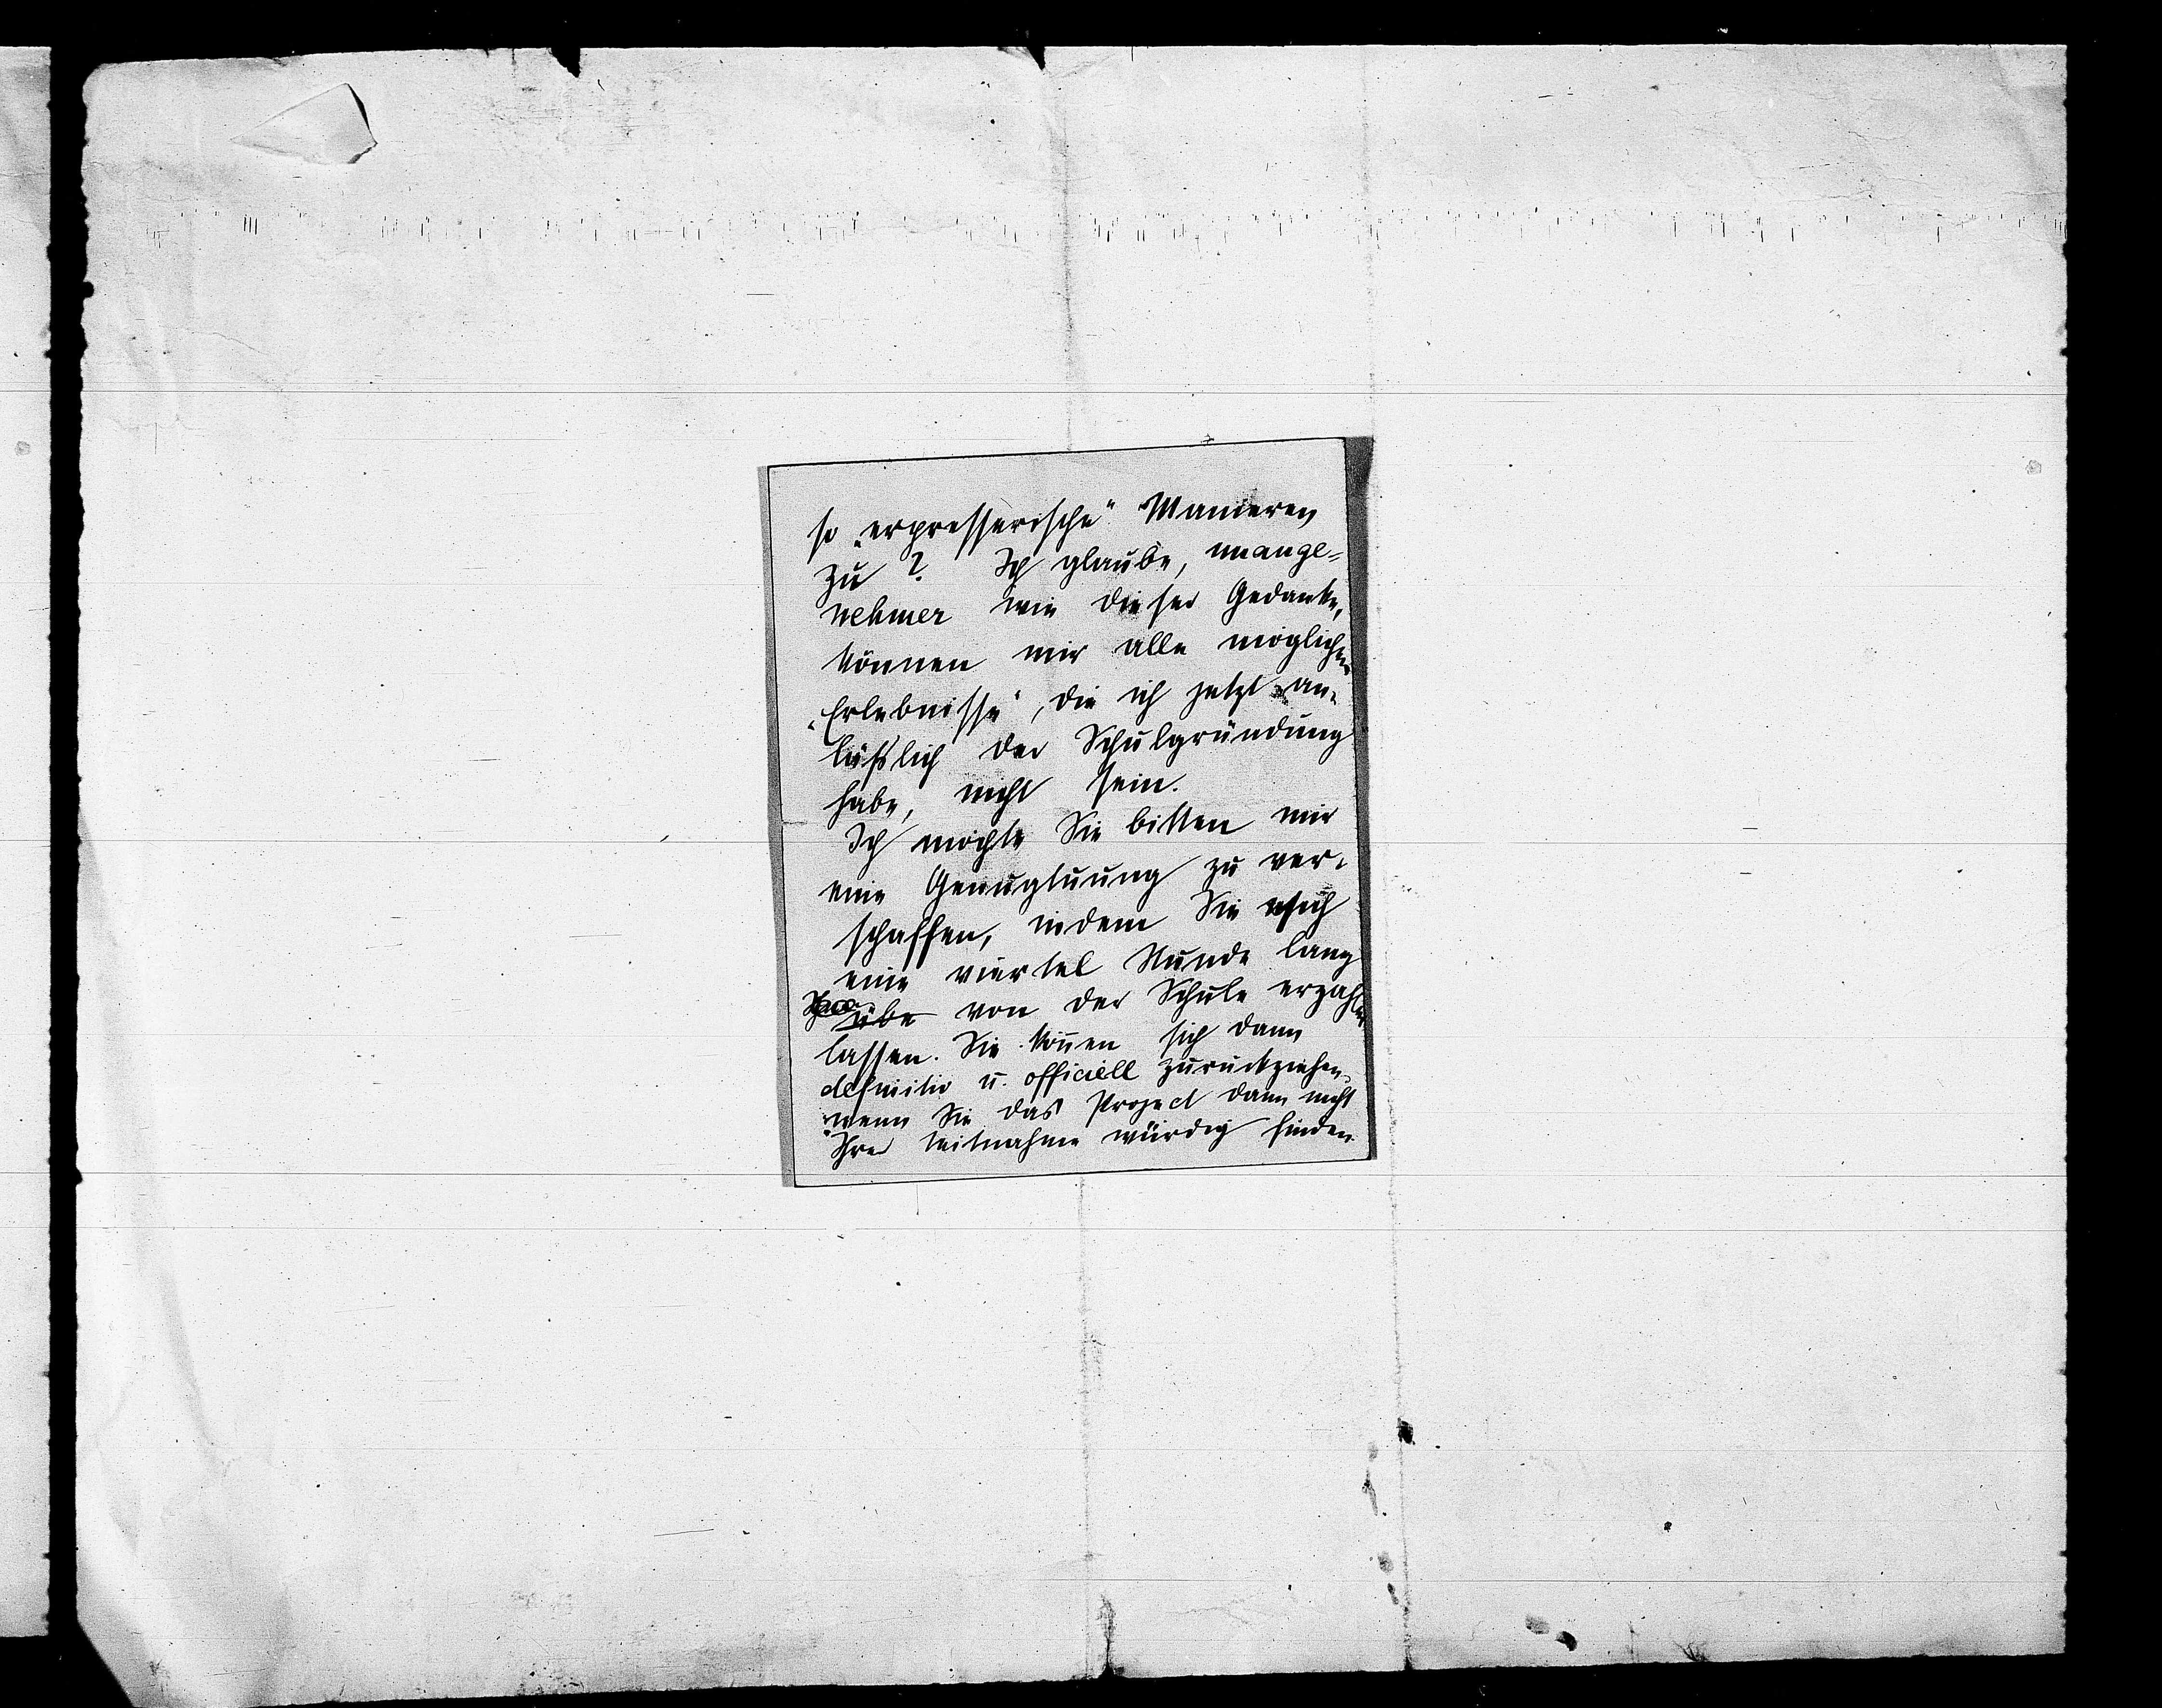 so „erpresserische“ Manieren
zu? Ich glaube, unange=
nehmer wie dieser Gedanke,
können mir alle möglichen
„Erlebnisse“, die ich jetzt an-
läßlich der Schulgründung
habe, nicht sein.
Ich möchte Sie bitten mir
eine Genugtuung zu ver-
schaffen, indem Sie sich
eine viertel Stunde lang
übe von der Schule erzählen
lassen. Sie könen sich dann
definitiv u. officiell zurückziehen,
wenn Sie das Project dann nicht
Ihrer teilnahme würdig finden.